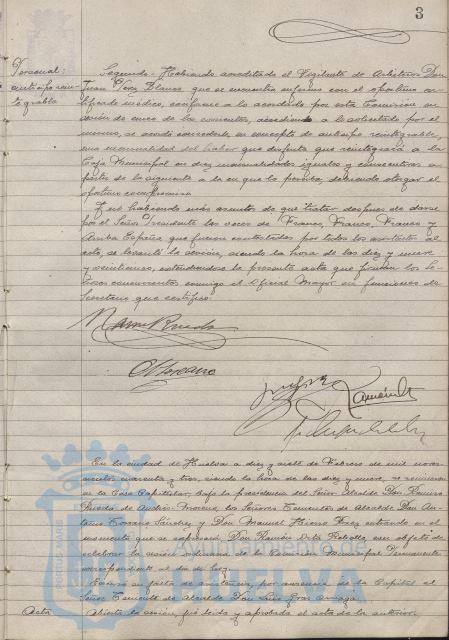 3
Personal:
anticipo rein-
tegrable
Segundo.- Habiendo acreditado el Vigilante de Arbitrios Don
Juan Pérez Blanco que se encuentra enfermo con el oportuno cer-
tificado médico, conforme a lo acordado por esta Comisión en
sesión de once de los corrientes, accediendo a lo solicitado por el
mismo, se acordó concederle, en concepto de anticipo reintegrable,
una mensualidad del haber que disfruta que reintegrará a la
Caja Municipal en diez mensualidades iguales y consecutivas a
partir de la siguiente a la en que la perciba, debiendo otorgar el
oportuno compromiso.
Y no habiendo más asuntos de que tratar después de darse
por el Señor Presidente las voces de Franco, Franco, Franco y
Arriba España que fueron contestadas por todos los asistentes al
acto, se levantó la sesión, siendo la hora de las diez y nueve
y veintiuno, extendiéndose la presente acta que firman los Se-
ñores concurrentes conmigo el Oficial Mayor en funciones de
Secretario que certifico.
En la ciudad de Huelva a diez y siete de Febrero de mil nove-
cientos cuarenta y tres, siendo la hora de las diez y nueve, se reunieron
en la Casa Capitular, bajo la presidencia del Señor Alcalde Don Ramiro
Rueda de Andrés Moreno, los Señores Tenientes de Alcalde Don An-
tonio Toscano Sánchez y Don Manuel entrando en el
momento que se expresará Don Ramón con objeto de
celebrar la sesión ordinaria de la Comisión Municipal Permanente
correspondiente al día de hoy.
falta de asistencia, por ausencia de la Capital el
Señor Teniente de Alcalde Don Luis
Acta
Abierta la sesión, fué leída y aprobada el acta de la anterior.
PORTUS MARIS
Ayuntamiento de
HUELVA